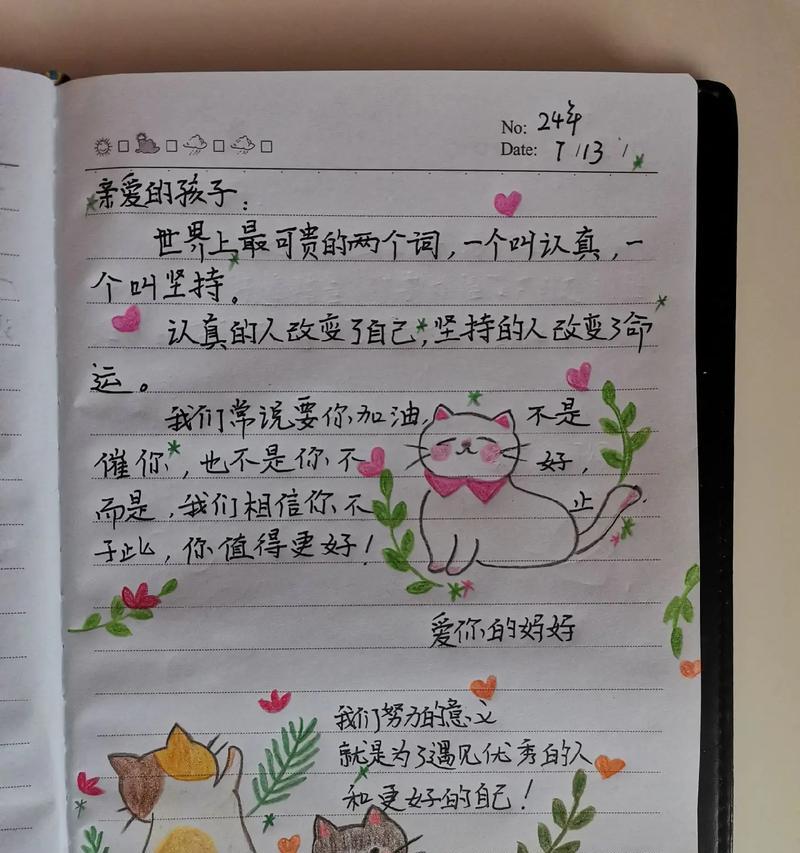 No: 24年
Date: 7/13/
亲爱的孩子:
世界上最可贵的两个词,一个叫认真,一
个叫坚持。
认真的人改变了自己,坚持的人改变了命
运。
我们常说要你加油, 不是
催你,也不是你不 好,
而是,我们相信你不 止
于此,你值得更好!
爱你的妈妈
我们努力的意义
就是为了遇见优秀的人
和更好的自己!